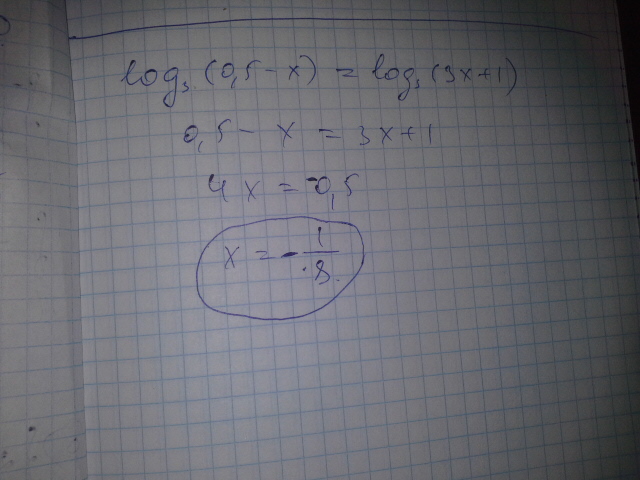 log₃ (0,5 - x) = log₃ (3x+1)
0,5 - x = 3x+1
4x = -0,5
x = - 1/8